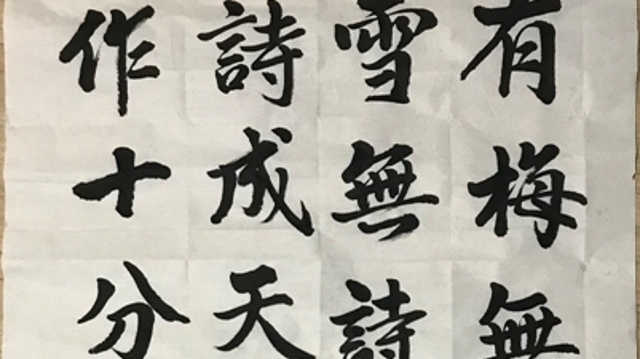 有梅無
雪無詩
詩成天
作十分